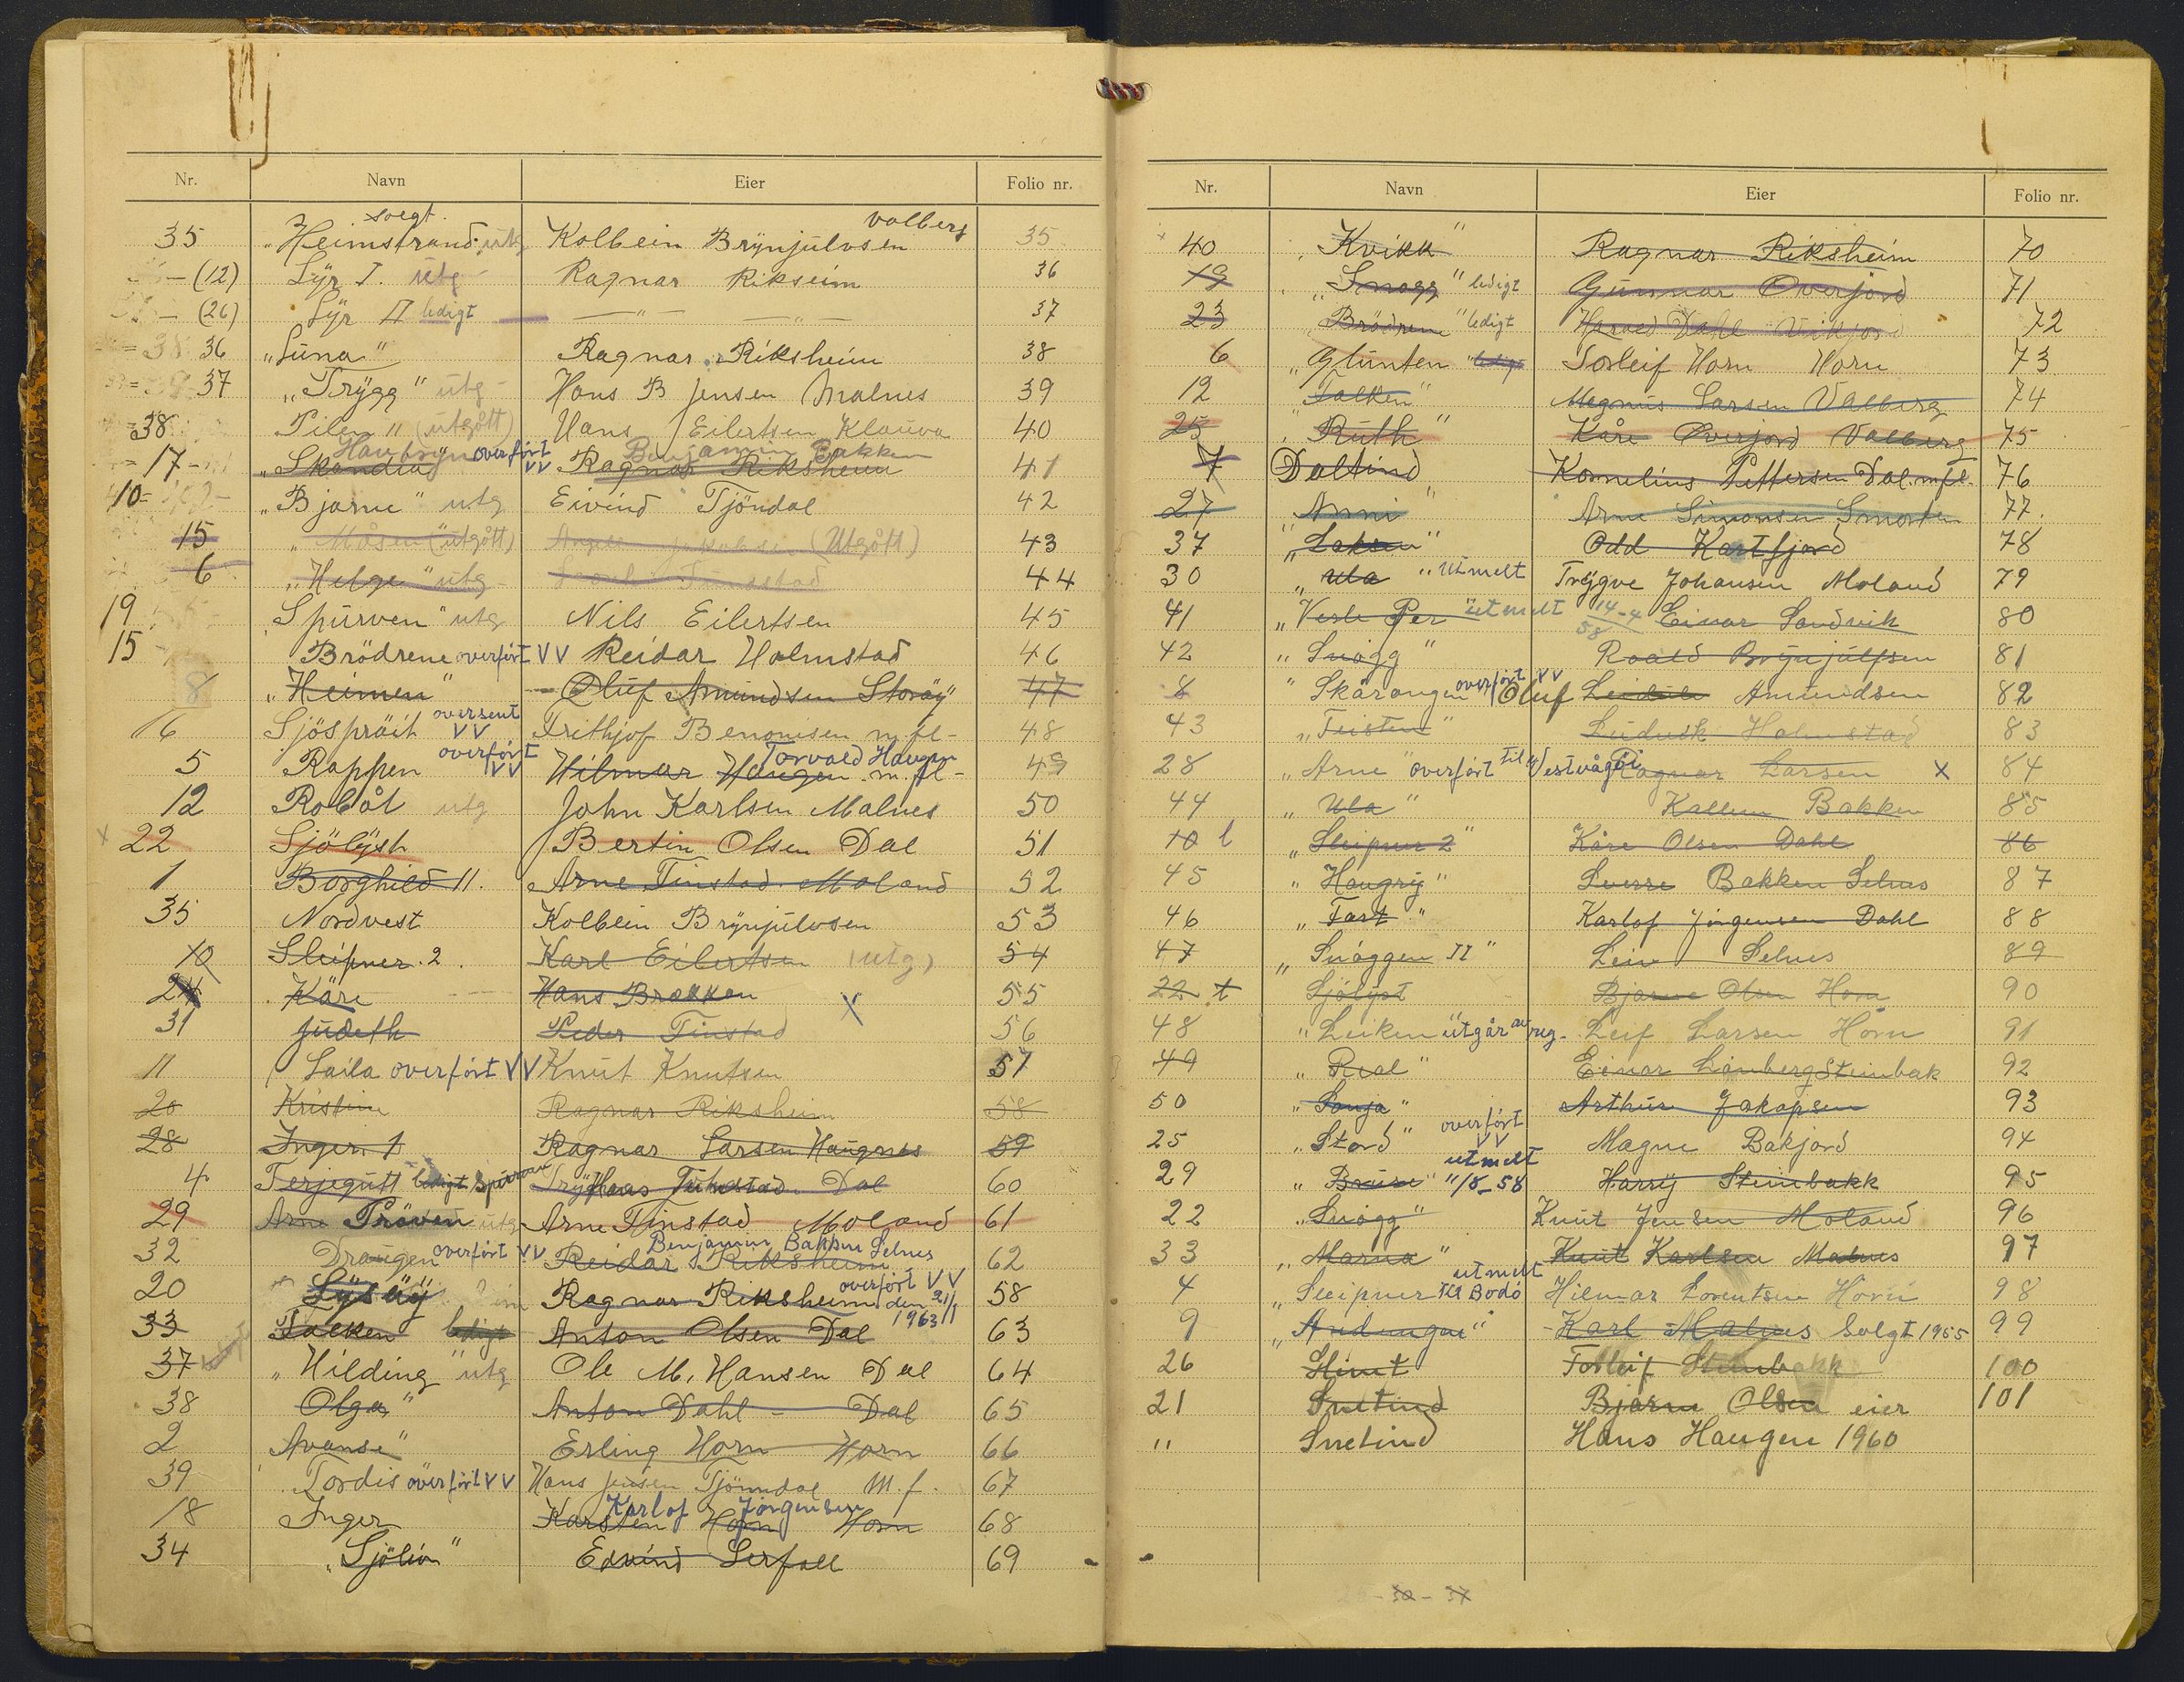 Nr. Navn Eier Folio nr.
35 "Heimstrand solgt. utg Kolbein Brynjulvsen Valberg 35
(12) Lyr I. utg Ragnar Rikseim 36
(26) Lyr II ledigt — " — — " — 37
36 "Luna" Ragnar Riksheim 38
37 "Trygg" utg - Hans B Jensen Malnes 39
38 Pilen" (utgått) Hans J Eilertsen Klauva 40
17 "Skandia" Haubryn overført VV Ragnar Riksheim Benjamin Bakken 41
10 "Bjarne" utg Eivind Tjöndal 42
15 "Måsen" (utgått) Jakobsen (Utgått) 43
6 "Helge" utg - Tinastad 44
19 Spurven" utg Nils Eilertsen 45
15 Brödrene overført VV Reidar Holmstad 46
8 "Heimen" Oluf Amundsen Storöy" 47
16 Sjöspröit oversent VV Frithjof Benonisen m fl - 48
5 Rappen overført VV Hilmar Haugen m. fl - Torvald Haugen 49
12 Robåt utg John Karlsen Malnes 50
x 22 Sjölyst Bertin Olsen Dal 51
1 Borghild II. Arne Tinstad Moland 52
35 Nordvest Kolbein Brynjulvsen 53
10 Sleipner. 2. Karl Eilertsen (utg) 54
24 Kåre Hans Brokken X 55
31 Judeth Peder Tinstad 56
11 Laila overført VV Knut Knutsen 57
20 Kristine Ragnar Riksheim 58
28 Inger. 1 Ragnar Larsen Haugnes 59
4 Terjegutt ledigt Spurven Hans Tinstad Dal 60
29 Arne Pröven utg Arne Tinstad Moland 61
32 Draugen overført VV Reidar Riksheim Benjamin Bakken Selnes 62
20 Lysöy Ragnar Riksheim overført VV den 21/1 1963 58
33 Falken ledigt Anton Olsen Dal 63
37 "Hilding" utg Ole M. Hansen Dal 64
38 Olga" Anton Dahl - Dal 65
2 Avanse" Erling Horn Horn 66
39 Tordis overført VV Hans Jensen Tjönndal M. f. 67
18 Inger Karsten Horn Horn Karlof Jörgensen 68
34 "Sjöliv" Edvind Serfall 69
Nr. Navn Eier Folio nr.
40 Kvikk" Ragnar Riksheim 70
19 "Snogg" ledigt Gunnar Överjord 71
23 Brödrene" ledigt Harald Dahl Vikjord 72
6 "Glunten" ledigt Torleif Horn Horn 73
12 "Falken" Magnus Larsen Valberg 74
25 Ruth" Kåre Överjord Valberg 75
7 Daltind Kornelius Pettersen Dal. m fl. 76
27 Anni" Arne Simonsen Smorten 77.
37 "Laksen" Odd Kartfjord 78
30 "Ula" utmelt Trygve Johansen Moland 79
41 "Vesle Per" utmelt 14-4 58 Einar Sandvik 80
42 "Snögg" Roald Brynjulfsen 81
8 "Skårungen overført VV Oluf Amundsen 82
43 "Teisten" Ludvik Holmstad 83
28 "Arne" overført til Vestvågöi Ragnar Larsen x 84
44 "Ula" Kallem Bakken 85
10 l "Sleipner 2" Kåre Olsen Dahl 86
45 "Haugry" Sverre Bakken Selnes 87
46 "Fart" Karlof Jörgensen Dahl 88
47 "Snöggen II" Leiv Selnes 89
22 t Sjölyst Bjarne Olsen Horn 90
48 "Leiken" utgår av reg. Leif Larsen Horn 91
49 "Real" Einar Limberg Steinbak 92
50 "Sonja" Arthur Jakopsen 93
25 "Stord" overført VV Magne Bakjord 94
29 "Bruse" utmelt 11/8-58 Harry Steinbakk 95
22 "Snögg" Knut Jensen Moland 96
33 "Marna" Knut Karlsen Malnes 97
4 "Sleipner utmelt til Bodö Hilmar Lorentsen Horn 98
9 "Andungen" Karl Malnes Solgt 1955 99
26 Stint Torleif Steinbakk 100
21 Snetind Bjarne Olsen eier 101
" Snetind Hans Haugen 1960
- 30 - 37